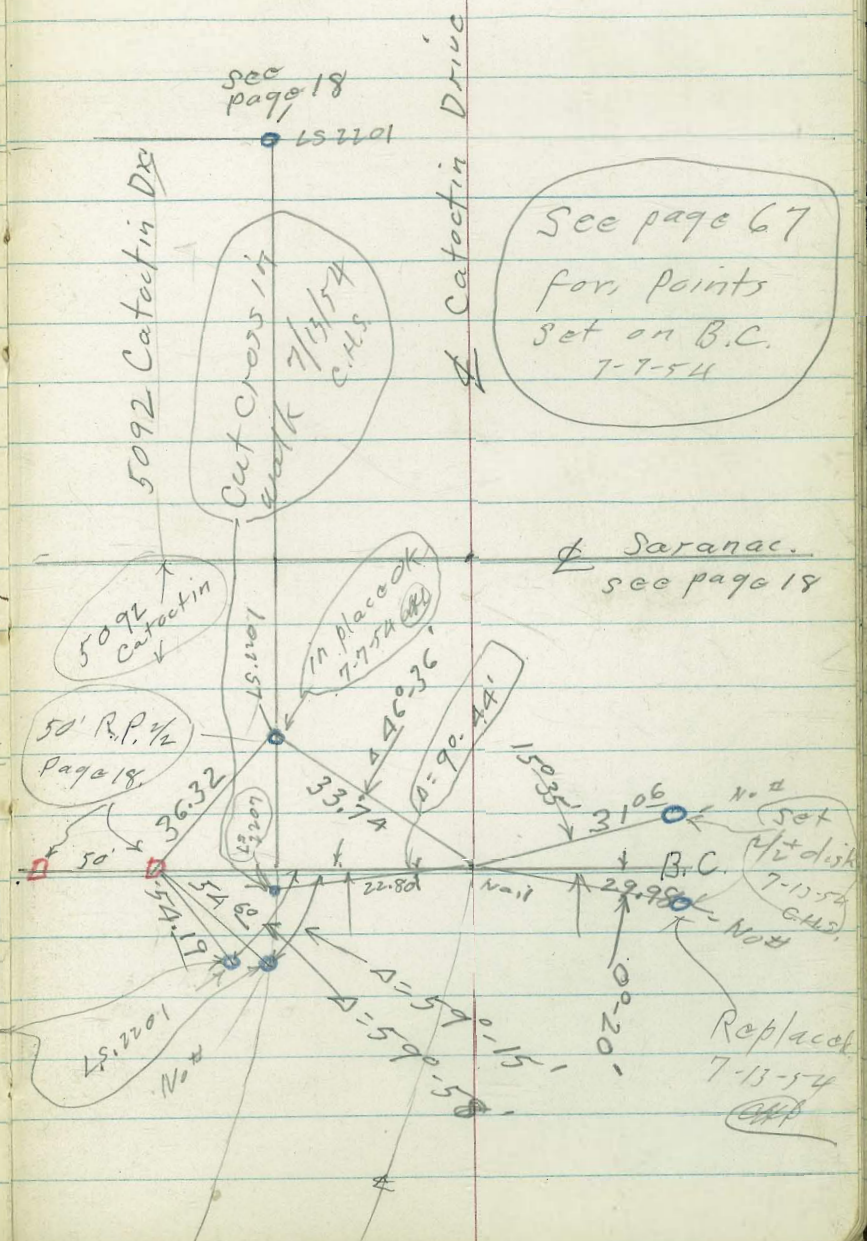 see
page 18
LS 2201
℄ Catoctin Drive
5092 Catoctin Dr.
Cut Cross in
walk 7/13/54
C.H.S.
See page 67
for, points
set on B.C.
7-7-54
℄ Saranac.
see page 18
5092
Catoctin
LS.2201
in place OK
7-7-54
50' R.P. 1/2
Page 18.
36.32
33.74
Δ 46°-36'
Δ= 9°-44'
15°35'
31.06
No #
set
1/2"+disk
7-13-54
C.H.S.
LS
2201
50'
22.80
Nail
B.C.
29.98
No #
54.19
54.61
Δ= 59°-15'
Δ= 59°-58'
0°-20'
LS.2201
No #
Replaced
7-13-54